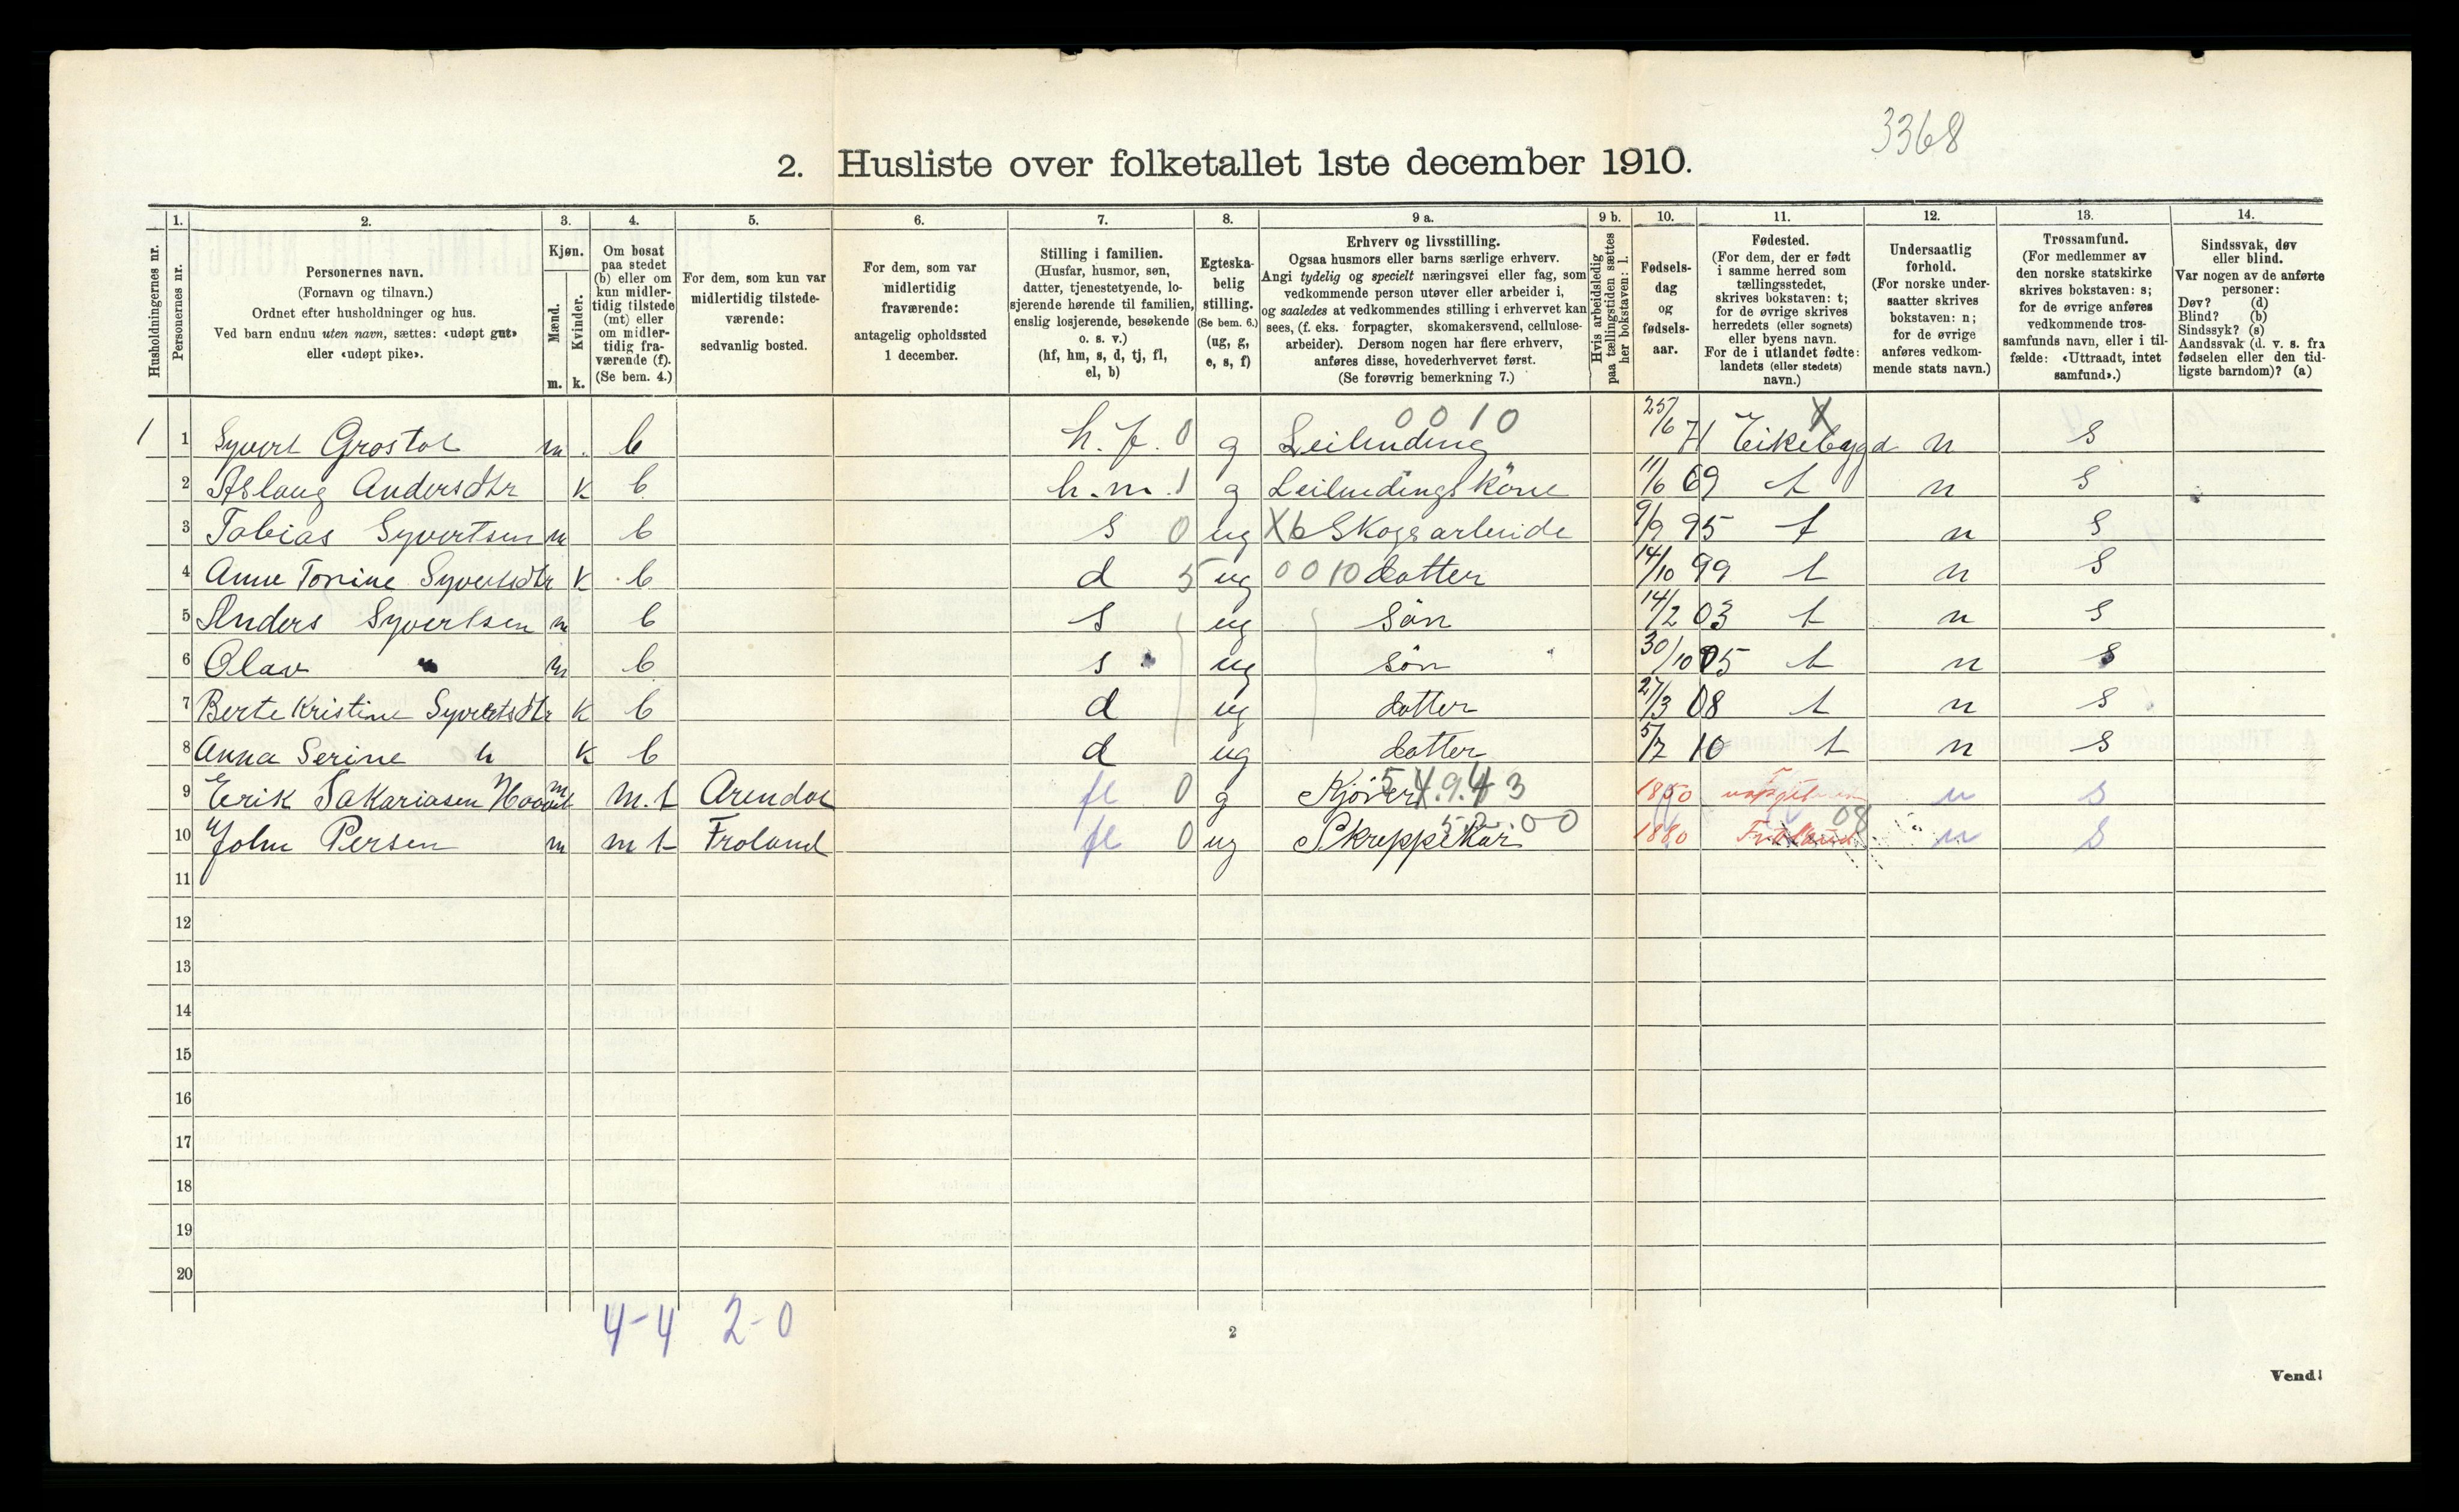 3368
2. Husliste over folketallet 1ste december 1910.
Husholdningernes nr.
1.
Personernes nr.
2.
Personernes navn.
(Fornavn og tilnavn.)
Ordnet efter husholdninger og hus.
Ved barn endnu uten navn, sættes: «udøpt gut»
eller «udøpt pike».
3.
Kjøn.
Mænd.
Kvinder.
m. k.
4.
Om bosat
paa stedet
(b) eller om
kun midler-
tidig tilstede
(mt) eller
om midler-
tidig fra-
værende (f).
(Se bem. 4.)
5.
For dem, som kun var
midlertidig tilstede-
værende:
sedvanlig bosted.
6.
For dem, som var
midlertidig
fraværende:
antagelig opholdssted
1 december.
7.
Stilling i familien.
(Husfar, husmor, søn,
datter, tjenestetyende, lo-
sjerende hørende til familien,
enslig losjerende, besøkende
o. s. v.)
(hf, hm, s, d, tj, fl,
el, b)
8.
Egteska-
belig
stilling.
(Se bem. 6.)
(ug, g,
e, s, f)
9 a.
Erhverv og livsstilling.
Ogsaa husmors eller barns særlige erhverv.
Angi tydelig og specielt næringsvei eller fag, som
vedkommende person utøver eller arbeider i,
og saaledes at vedkommendes stilling i erhvervet kan
sees, (f. eks. forpagter, skomakersvend, cellulose-
arbeider). Dersom nogen har flere erhverv,
anføres disse, hovederhvervet først.
(Se forøvrig bemerkning 7.)
9 b.
Hvis arbeidsledig
paa tællingstiden sættes
her bokstaven: l.
10.
Fødsels-
dag
og
fødsels-
aar.
11.
Fødested.
(For dem, der er født
i samme herred som
tællingsstedet,
skrives bokstaven: t;
for de øvrige skrives
herredets (eller sognets)
eller byens navn.
For de i utlandet fødte:
landets (eller stedets)
navn.)
12.
Undersaatlig
forhold.
(For norske under-
saatter skrives
bokstaven: n;
for de øvrige
anføres vedkom-
mende stats navn.)
13.
Trossamfund.
(For medlemmer av
den norske statskirke
skrives bokstaven: s;
for de øvrige anføres
vedkommende tros-
samfunds navn, eller i til-
fælde: «Uttraadt, intet
samfund».)
14.
Sindssvak, døv
eller blind.
Var nogen av de anførte
personer:
Døv? (d)
Blind? (b)
Sindssyk? (s)
Aandssvak (d. v. s. fra
fødselen eller den tid-
ligste barndom)? (a)
1 1 Syvert Grostøl m. b h. f. 0 g Leilending 0010 25/6 71 Eikebygd X n S
2 Aslaug Andersdtr k b h.m. 1 g Leilendingskône 11/6 69 t n S
3 Tobias Syvertsen m b s 0 ug Xb Skogsarbeide 9/9 95 t n S
4 Anne Tonine Syvertsdtr k b d 5 ug 0010 datter 14/10 99 t n S
5 Anders Syvertsen m b s ug Sön 14/2 03 t n S
6 Olav " m b s ug sön 30/10 05 t n S
7 Berte Kristine Syvertsdtr k b d ug datter 27/3 08 t n S
8 Anna Serine " k b d ug datter 5/7 10 t n S
9 Erik Sakariasen m m.t Arendal fl 0 g 1850 n S
10 John Persen m mt Froland fl 0 ug Skreppekar 52.00 1880 08 n S
11
12
13
14
15
16
17
18
19
20
4-4 2-0
2
Vend!